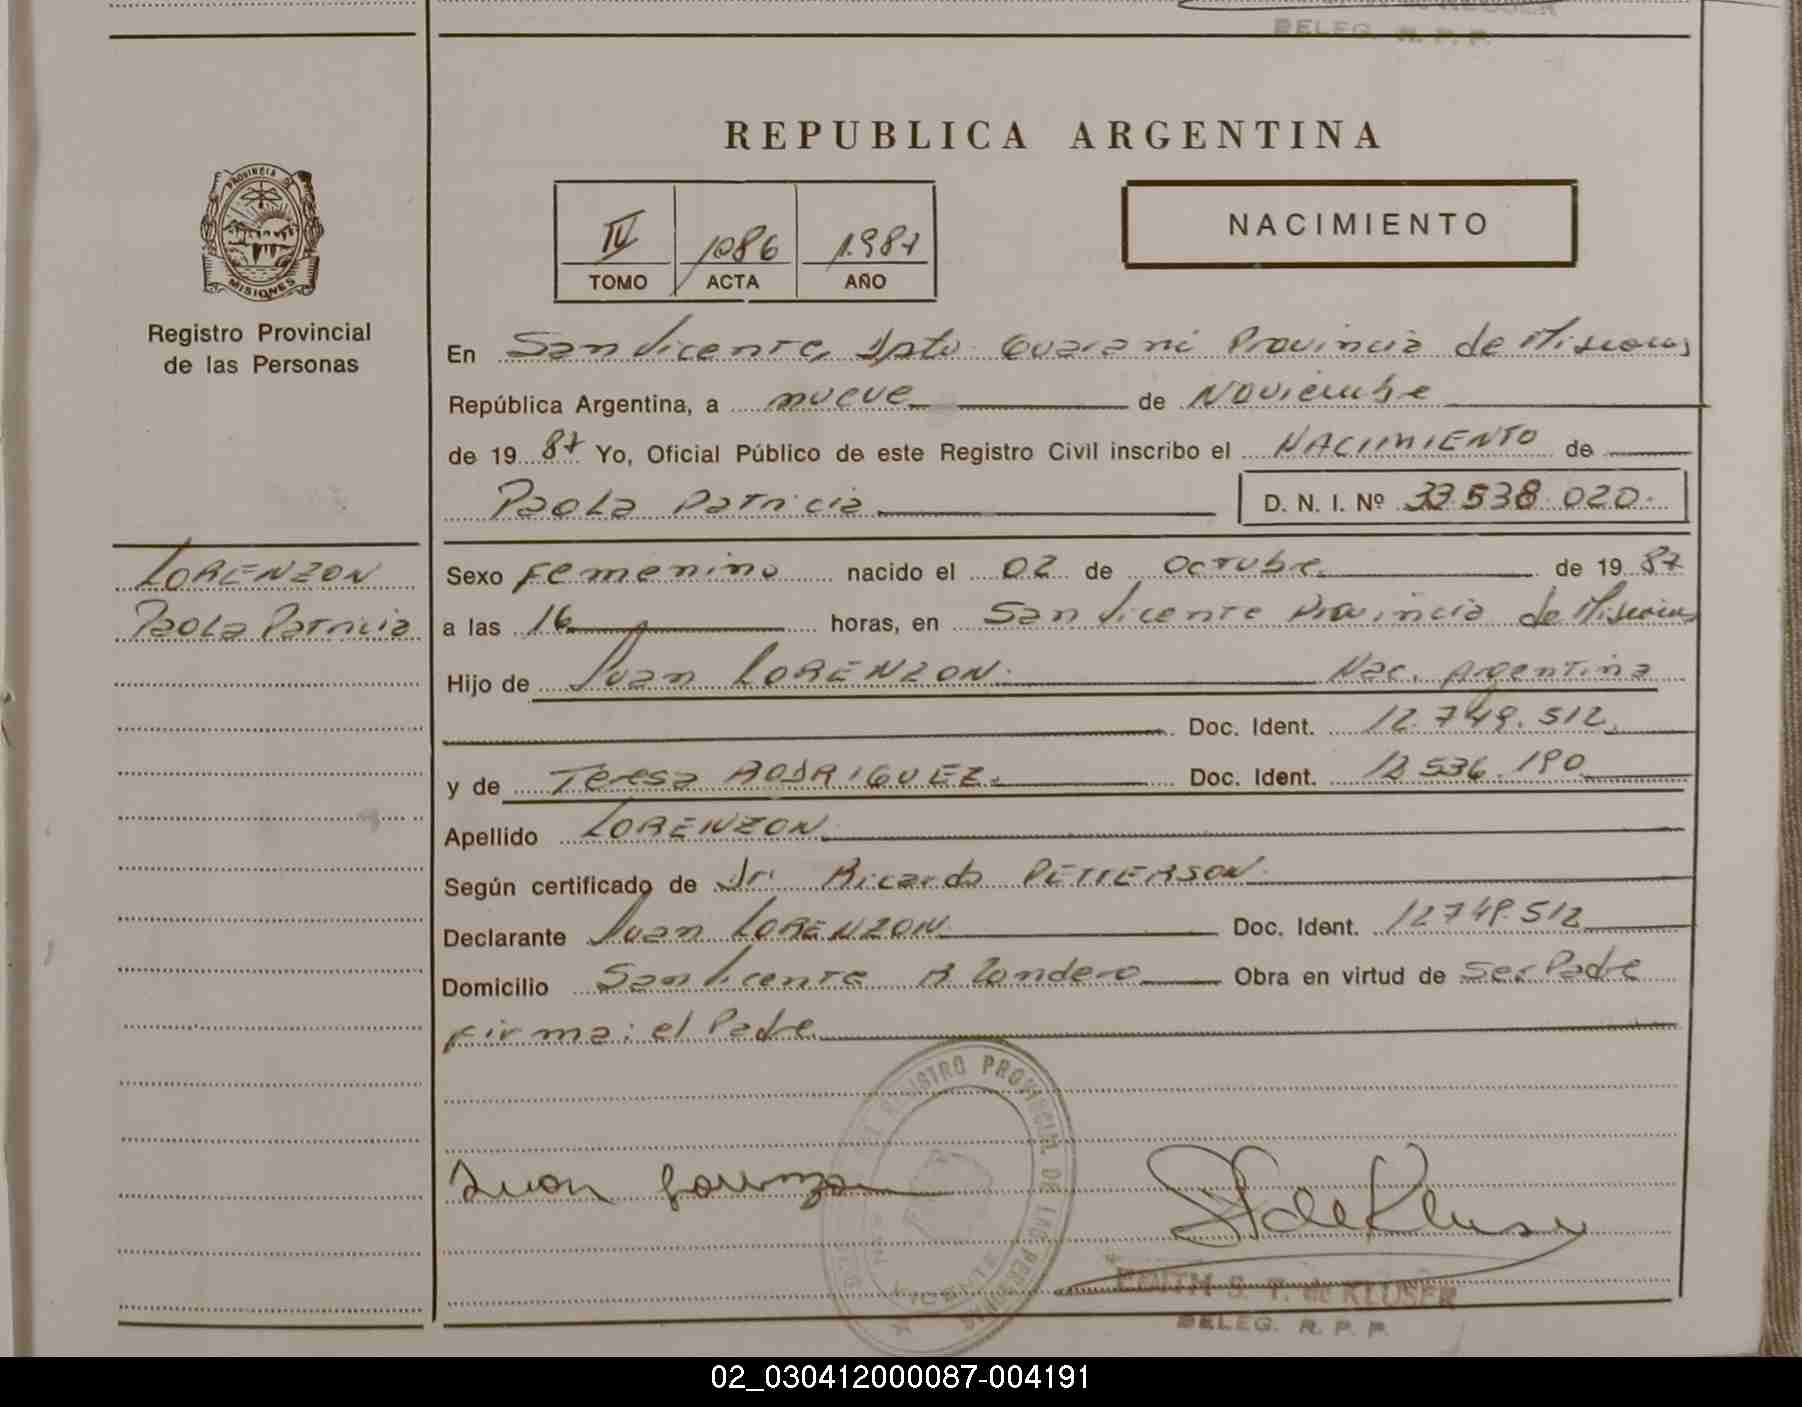 DELEG. R. P. P.
REPUBLICA ARGENTINA
NACIMIENTO
IV 1086 1.987
TOMO ACTA AÑO
PROVINCIA DE
MISIONES
Registro Provincial
de las Personas
En San Vicente, Dpto Guarani Provincia de Misiones
República Argentina, a nueve de Noviembre
de 19 87 Yo, Oficial Público de este Registro Civil inscribo el NACIMIENTO de
Paola Patricia D. N. I. Nº 33.538.020.
LORENZON
Paola Patricia
Sexo Femenino nacido el 02 de Octubre de 19 87
a las 16 horas, en San Vicente Provincia de Misiones
Hijo de Juan LORENZON. Nac. Argentina
Doc. Ident. 12.749.512.
y de Teresa RODRIGUEZ. Doc. Ident. 536.190
Apellido LORENZON
Según certificado de Dr. Ricardo PETTERSON
Declarante Juan LORENZON Doc. Ident. 12749.512
Domicilio San Vicente B. Londero Obra en virtud de Ser Padre
Firma: el Padre
REGISTRO PROVINCIAL DE LAS PERSONAS
VICENTE
Juan Lorenzon
de Kluser
S. T. de KLUSER
DELEG. R. P. P.
02_030412000087-004191